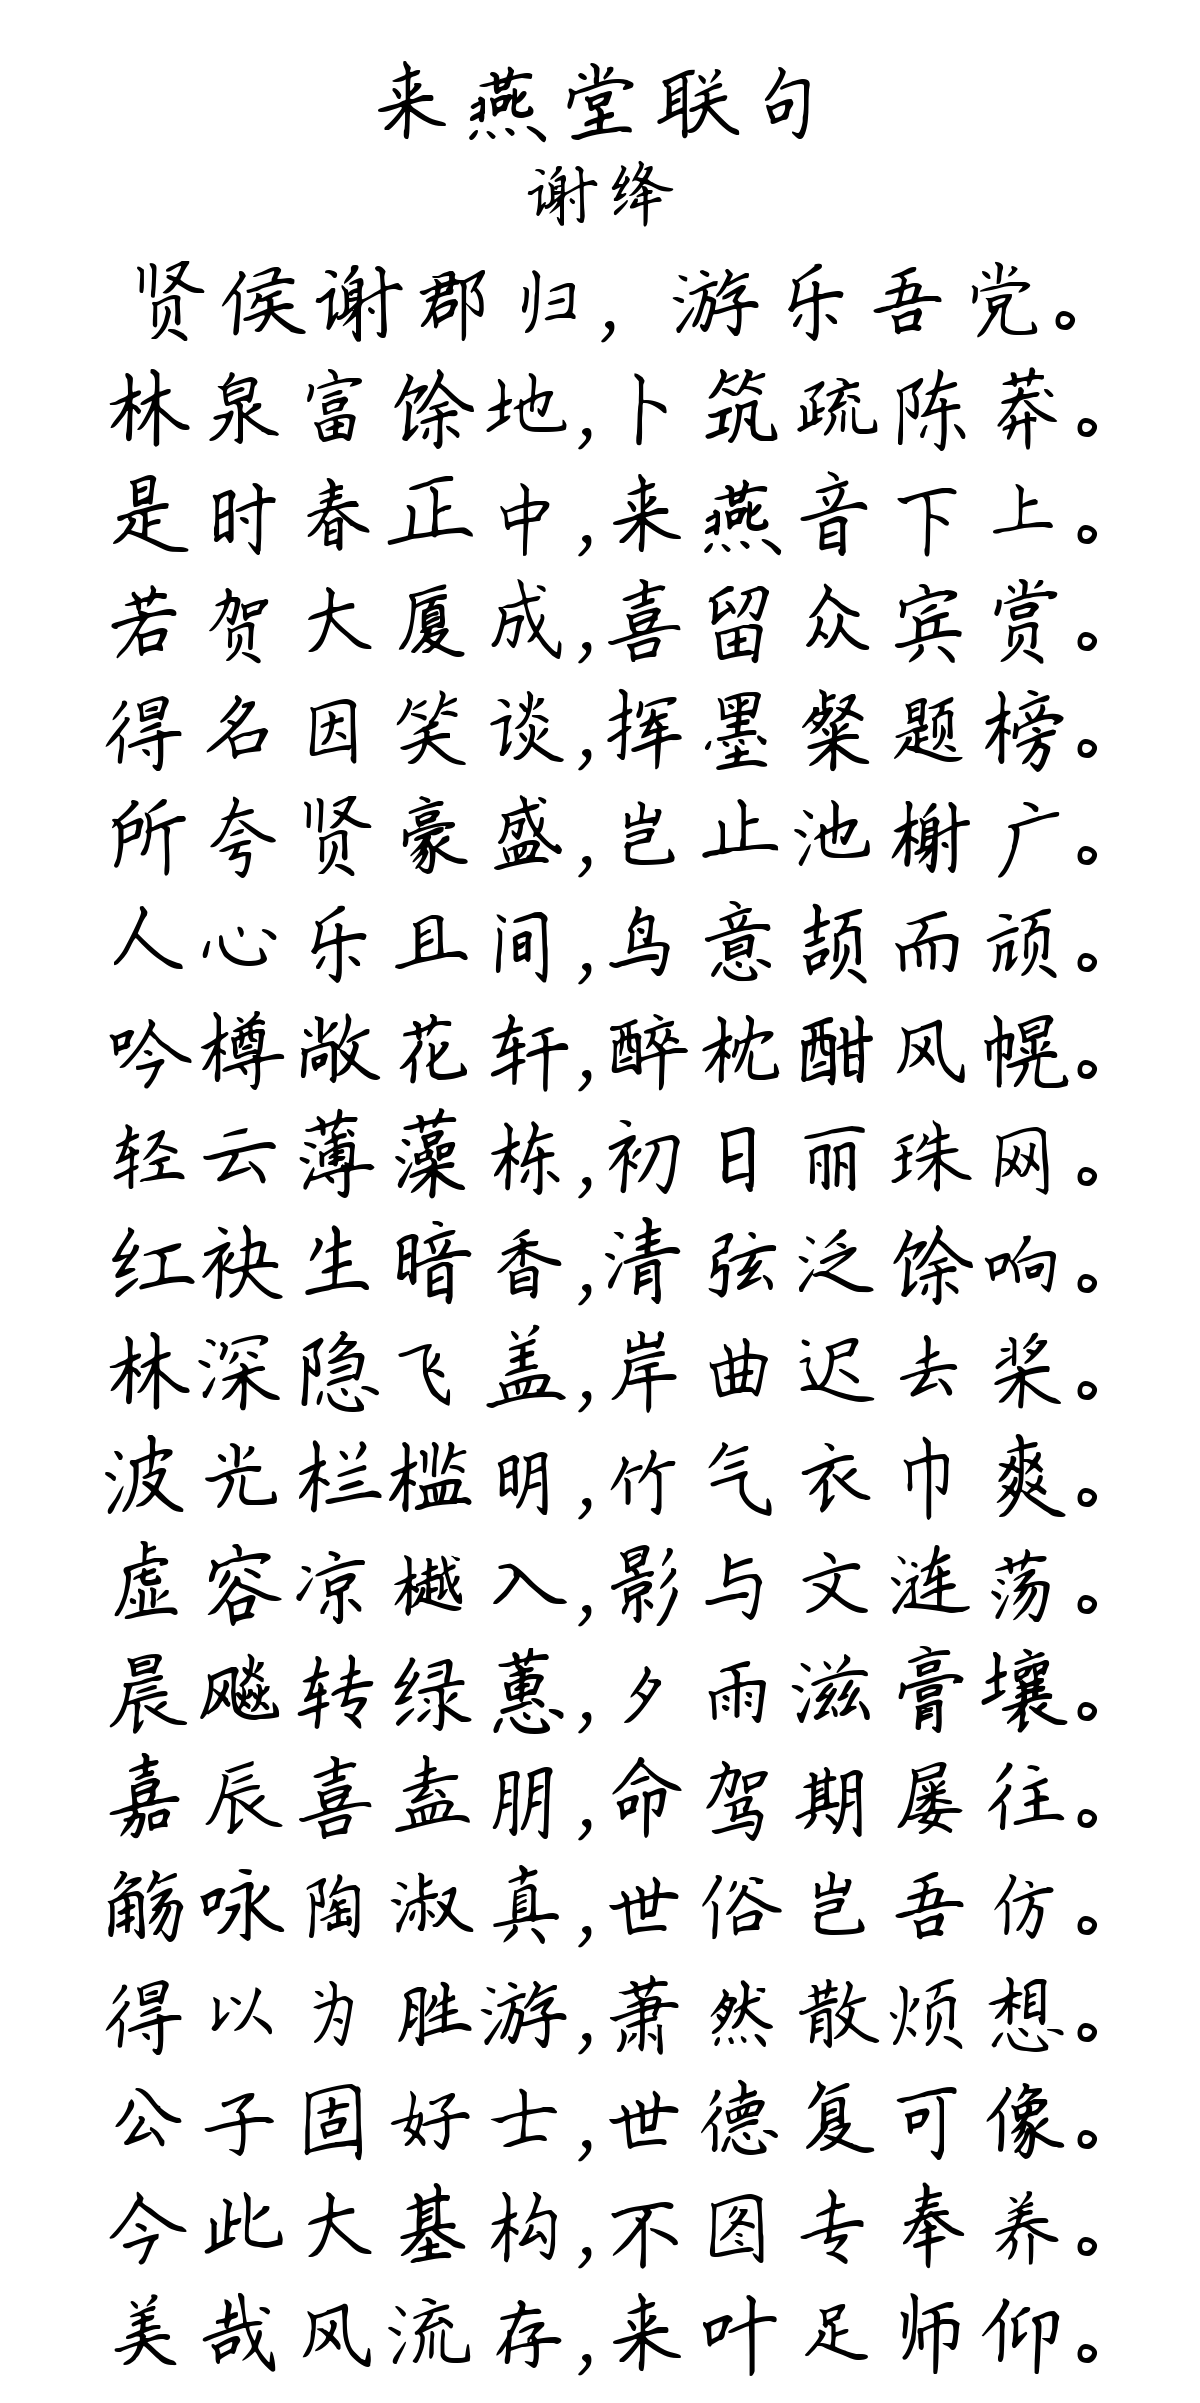 来燕堂联句
谢绛
贤侯谢郡归，游乐吾党。
林泉富馀地，卜筑疏陈莽。
是时春正中，来燕音下上。
若贺大厦成，喜留众宾赏。
得名因笑谈，挥墨粲题榜。
所夸贤豪盛，岂止池榭广。
人心乐且间，鸟意颉而颃。
吟樽敞花轩，醉枕酣风幌。
轻云薄藻栋，初日丽珠网。
红袂生暗香，清弦泛馀响。
林深隐飞盖，岸曲迟去桨。
波光栏槛明，竹气衣巾爽。
虚容凉樾入，影与文涟荡。
晨飚转绿蕙，夕雨滋膏壤。
嘉辰喜盍朋，命驾期屡往。
觞咏陶淑真，世俗岂吾仿。
得以为胜游，萧然散烦想。
公子固好士，世德复可像。
今此大基构，不图专奉养。
美哉风流存，来叶足师仰。